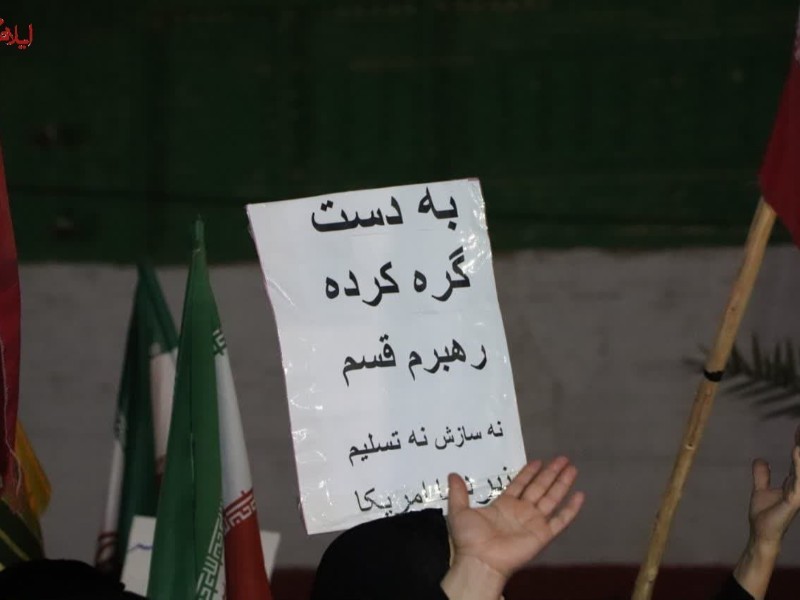 به دست
گره کرده
رهبرم قسم
نه سازش نه تسلیم
امریکا